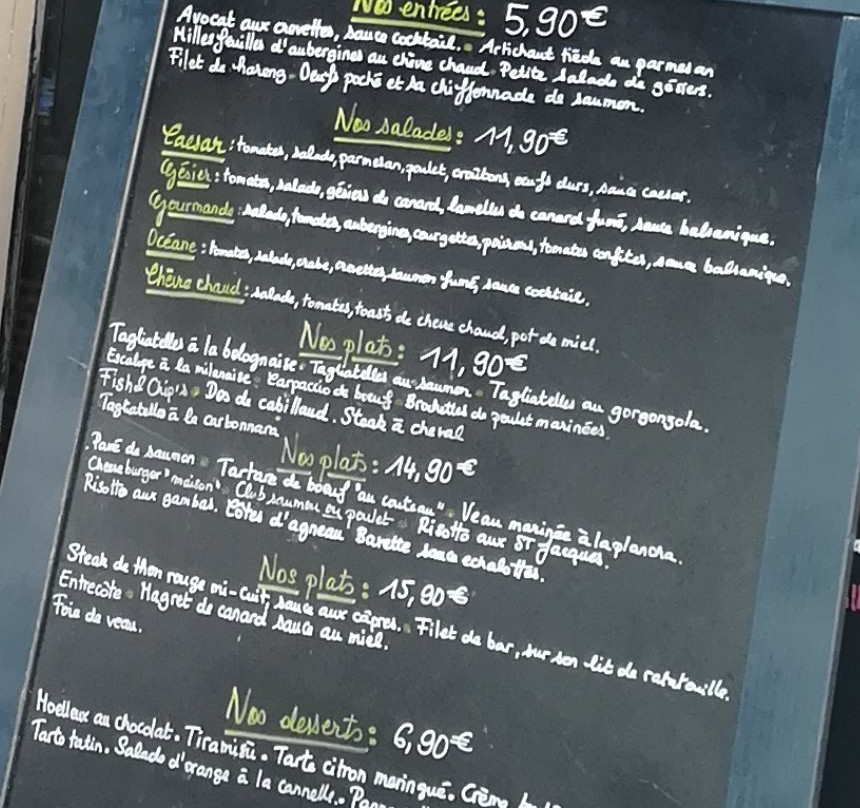 Nos entrées : 5,90€
Avocat aux crevettes, sauce cocktail. Artichaut tiède au parmesan
Millesfeuilles d'aubergines au chèvre chaud. Petite salade de gésiers.
Filet de hareng - Oeufs poché et sa chiffonnade de saumon.
Nos salades : 11,90€
Caesar : tomates, salade, parmesan, poulet, croûtons, oeufs durs, sauce caesar.
Gésier : tomates, salade, gésiers de canard, lamelles de canard fumé, sauce balsamique.
Gourmande : salade, tomates, aubergines, courgettes, poivrons, tomates confites, sauce balsamique.
Océane : tomates, salade, crabe, crevettes, saumon fumé, sauce cocktail.
Chèvre chaud : salade, tomates, toasts de chevre chaud, pot de miel.
Nos plats : 11,90€
Tagliatelles à la bolognaise. Tagliatelles au saumon - Tagliatelles au gorgonzola.
Escalope à la milanaise - Carpaccio de boeuf - Brochettes de poulet marinées.
Fish & Chip's. Dos de cabillaud. Steak à cheval
Tagliatelle à la carbonnara
Nos plats : 14,90€
. Pavé de saumon. Tartare de boeuf "au couteau". Veau marinée à la plancha.
Cheeseburger "maison". Club saumon ou poulet - Risotto aux ST Jacques.
Risotto aux gambas. Côtes d'agneau Bavette sauce echalottes.
Nos plats : 15,90€
Steak de thon rouge mi-cuit, sauce aux câpres. Filet de bar, sur son lit de ratatouille.
Entrecôte. Magret de canard sauce au miel.
Foie de veau.
Nos desserts : 6,90€
Moelleux au chocolat. Tiramisù. Tarte citron meringué. Crème
Tarte tatin. Salade d'orange à la cannelle.